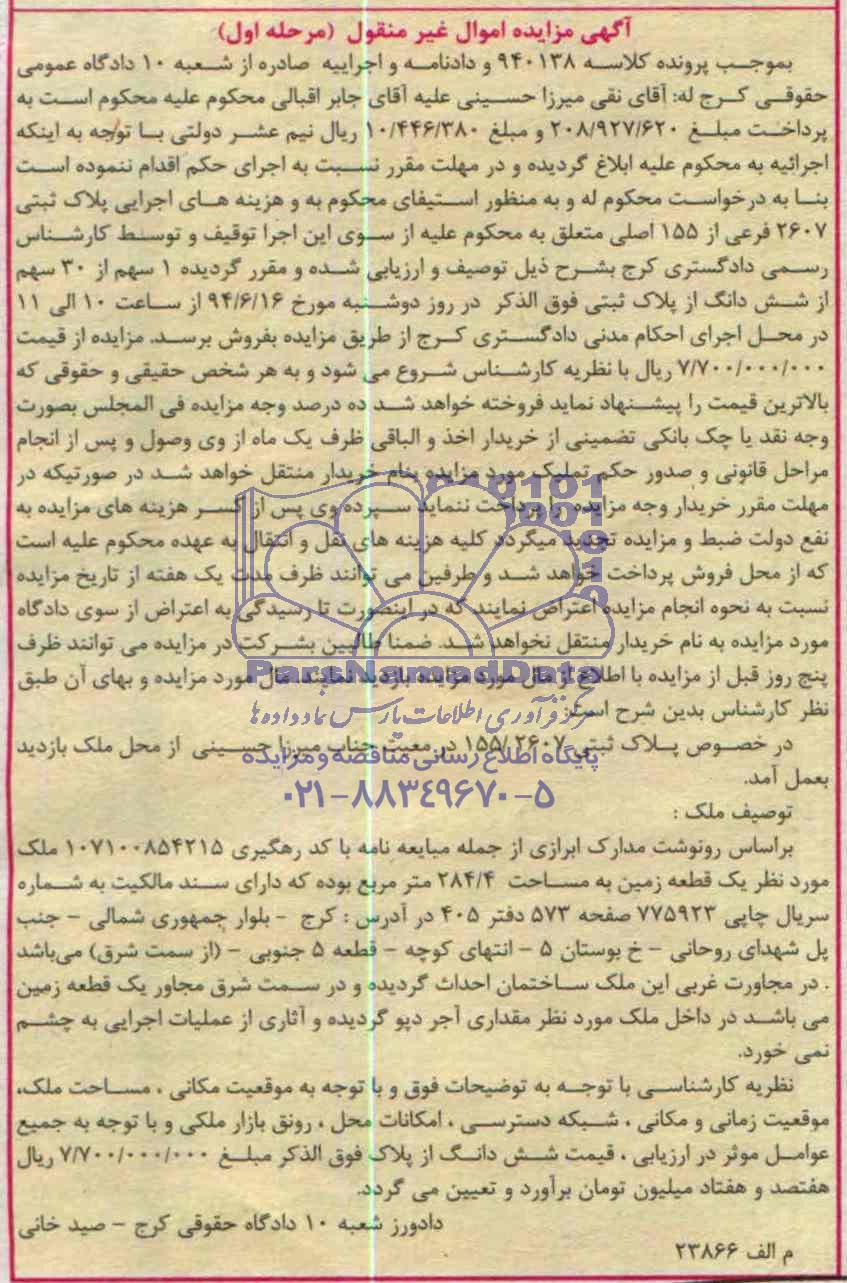 آگهی مزایده اموال غیر منقول (مرحله اول)
بموجب پرونده کلاسه ۹۴۰۱۳۸ و دادنامه و اجراییه صادره از شعبه ۱۰ دادگاه عمومی
حقوقی کرج له: آقای نقی میرزا حسینی علیه آقای جابر اقبالی محکوم علیه محکوم است به
پرداخت مبلغ ۲۰۸/۹۲۷/۶۲۰ و مبلغ ۱۰/۴۴۶/۳۸۰ ریال نیم عشر دولتی با توجه به اینکه
اجرائیه به محکوم علیه ابلاغ گردیده و در مهلت مقرر نسبت به اجرای حکم اقدام ننموده است
بنا به درخواست محکوم له و به منظور استیفای محکوم به و هزینه های اجرایی پلاک ثبتی
۲۶۰۷ فرعی از ۱۵۵ اصلی متعلق به محکوم علیه از سوی این اجرا توقیف و توسط کارشناس
رسمی دادگستری کرج بشرح ذیل توصیف و ارزیابی شده و مقرر گردیده ۱ سهم از ۳۰ سهم
از شش دانگ از پلاک ثبتی فوق الذکر در روز دوشنبه مورخ ۹۴/۶/۱۶ از ساعت ۱۰ الی ۱۱
در محل اجرای احکام مدنی دادگستری کرج از طریق مزایده بفروش برسد. مزایده از قیمت
۷/۷۰۰/۰۰۰/۰۰۰ ریال با نظریه کارشناس شروع می شود و به هر شخص حقیقی و حقوقی که
بالاترین قیمت را پیشنهاد نماید فروخته خواهد شد ده درصد وجه مزایده فی المجلس بصورت
وجه نقد یا چک بانکی تضمینی از خریدار اخذ و الباقی ظرف یک ماه از وی وصول و پس از انجام
مراحل قانونی و صدور حکم تملیک مورد مزایده بنام خریدار منتقل خواهد شد در صورتیکه در
مهلت مقرر خریدار وجه مزایده را پرداخت ننماید سپرده وی پس از کسر هزینه های مزایده به
نفع دولت ضبط و مزایده تجدید میگردد کلیه هزینه های نقل و انتقال به عهده محکوم علیه است
که از محل فروش پرداخت خواهد شد و طرفین می توانند ظرف مدت یک هفته از تاریخ مزایده
نسبت به نحوه انجام مزایده اعتراض نمایند که در اینصورت تا رسیدگی به اعتراض از سوی دادگاه
مورد مزایده به نام خریدار منتقل نخواهد شد. ضمنا طالبین بشرکت در مزایده می توانند ظرف
پنج روز قبل از مزایده با اطلاع از مال مورد مزایده بازدید نمایند. مال مورد مزایده و بهای آن طبق
نظر کارشناس بدین شرح است:
ParsNamadData
مرکز فرآوری اطلاعات پارس نماد داده ها
در خصوص پلاک ثبتی ۱۵۵/۲۶۰۷ در معیت جناب میرزا حسینی از محل ملک بازدید
بعمل آمد.
پایگاه اطلاع رسانی مناقصه و مزایده
۰۲۱-۸۸۳۴۹۶۷۰-۵
توصیف ملک :
براساس رونوشت مدارک ابرازی از جمله مبایعه نامه با کد رهگیری ۱۰۷۱۰۰۸۵۴۲۱۵ ملک
مورد نظر یک قطعه زمین به مساحت ۲۸۴/۴ متر مربع بوده که دارای سند مالکیت به شماره
سریال چاپی ۷۷۵۹۲۳ صفحه ۵۷۳ دفتر ۴۰۵ در آدرس : کرج - بلوار جمهوری شمالی - جنب
پل شهدای روحانی - خ بوستان ۵ - انتهای کوچه - قطعه ۵ جنوبی - (از سمت شرق) می‌باشد
. در مجاورت غربی این ملک ساختمان احداث گردیده و در سمت شرق مجاور یک قطعه زمین
می باشد در داخل ملک مورد نظر مقداری آجر دپو گردیده و آثاری از عملیات اجرایی به چشم
نمی خورد.
نظریه کارشناسی با توجه به توضیحات فوق و با توجه به موقعیت مکانی ، مساحت ملک،
موقعیت زمانی و مکانی ، شبکه دسترسی ، امکانات محل ، رونق بازار ملکی و با توجه به جمیع
عوامل موثر در ارزیابی ، قیمت شش دانگ از پلاک فوق الذکر مبلغ ۷/۷۰۰/۰۰۰/۰۰۰ ریال
هفتصد و هفتاد میلیون تومان برآورد و تعیین می گردد.
دادورز شعبه ۱۰ دادگاه حقوقی کرج - صید خانی
م الف ۲۳۸۶۶